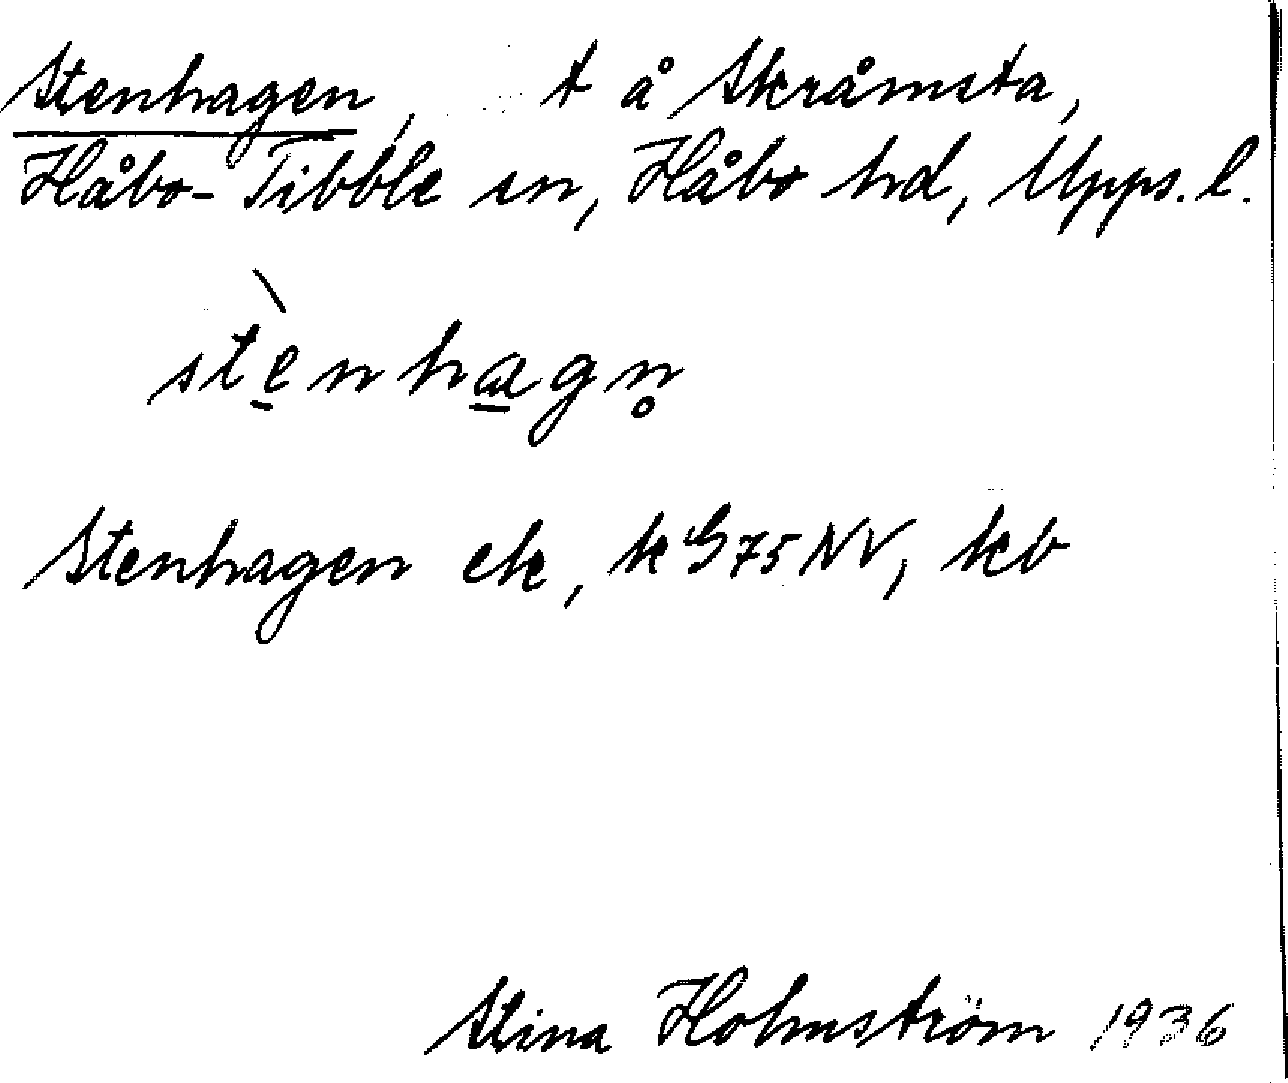 Stenhagen, t å Skråmsta,
Håbo-Tibble sn, Håbo hd, Upps. l.
stènhagn̥
Stenhagen ek, k G75NV, kb
Stina Holmström 1936